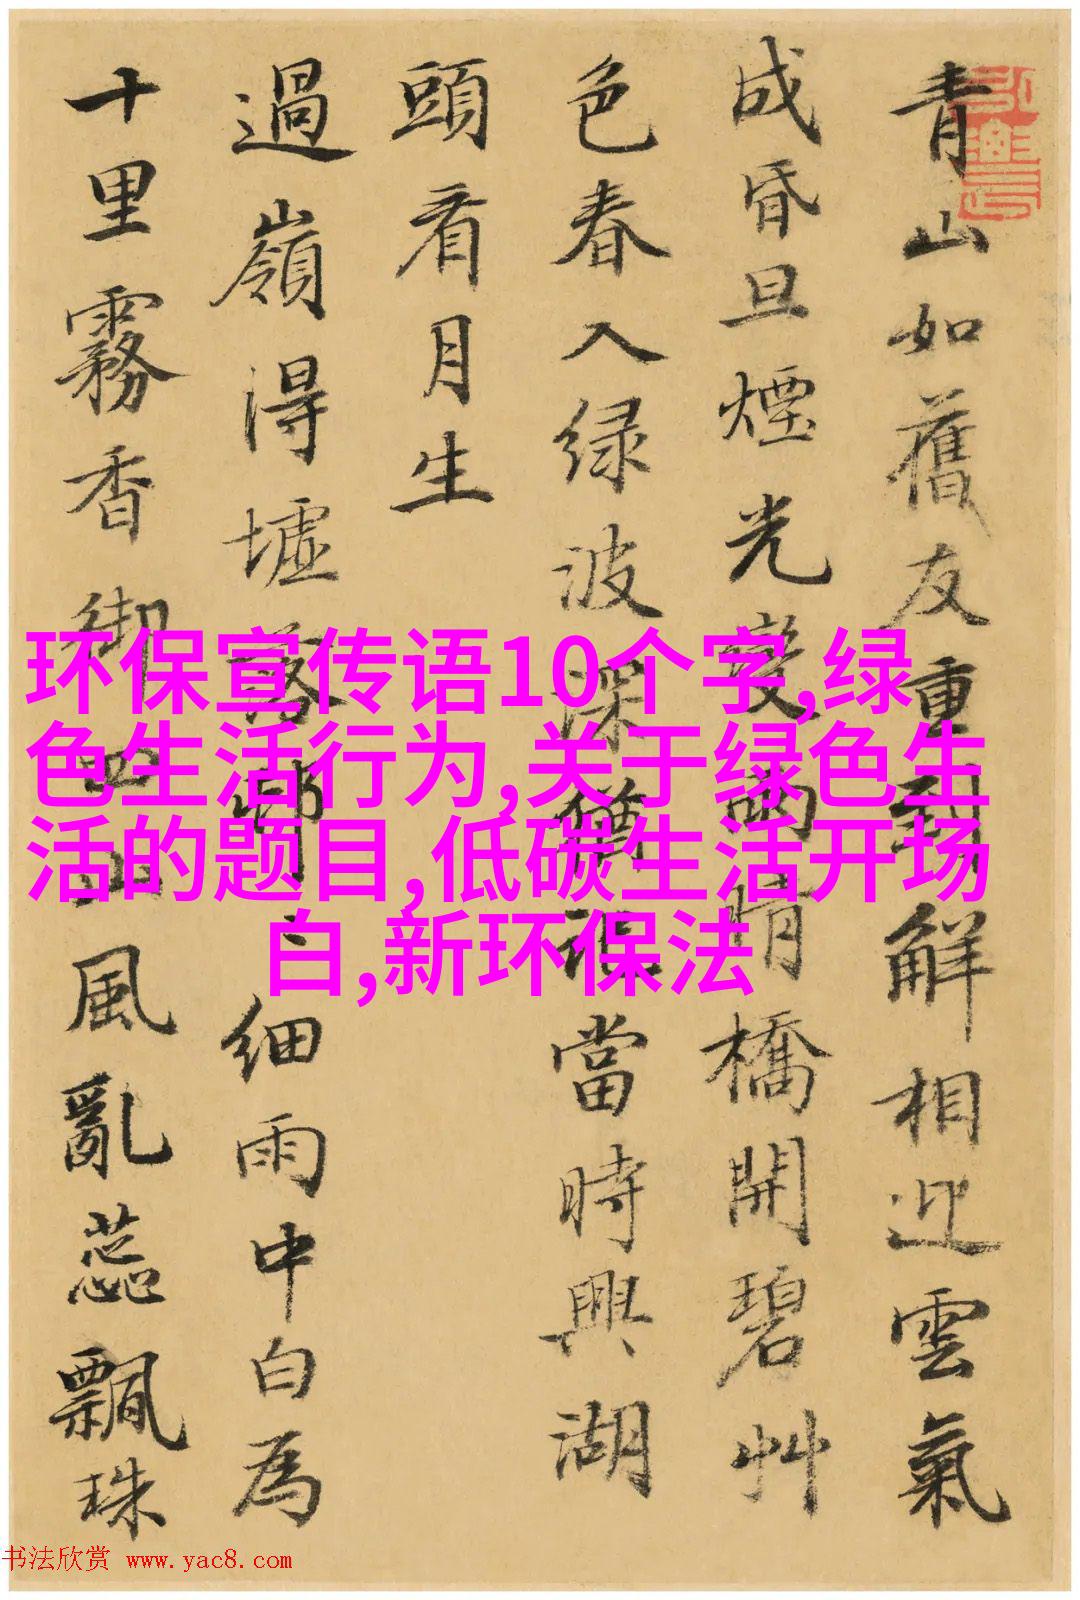 青山如舊友重到解相迎雲氣
成昏旦煙光變雨晴橋開碧艸
色春入绿波深猶記當時興湖
頭看月生
過嶺得墟落邨〻細雨中白為
十里霧香御四山風亂蕊飄珠
环保宣传语10个字,绿
色生活行为,关于绿色生
活的题目,低碳生活开场
白,新环保法
书法欣赏 www.yac8.com